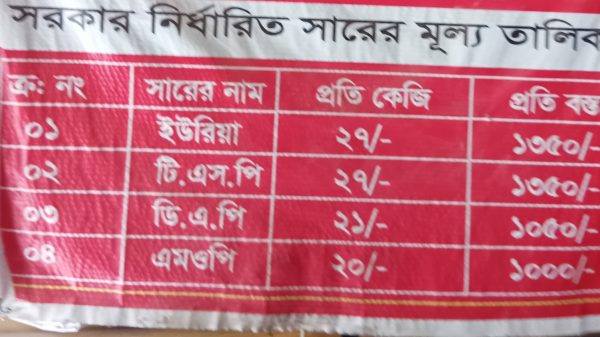 সরকার নির্ধারিত সারের মূল্য তালিক
ক্র: নং সারের নাম প্রতি কেজি প্রতি বস্ত
০১ ইউরিয়া ২৭/- ১৩৫০/-
০২ টি.এস.পি ২৭/- ১৩৫০/-
০৩ ডি.এ.পি ২১/- ১০৫০/-
০৪ এমওপি ২০/- ১০০০/-